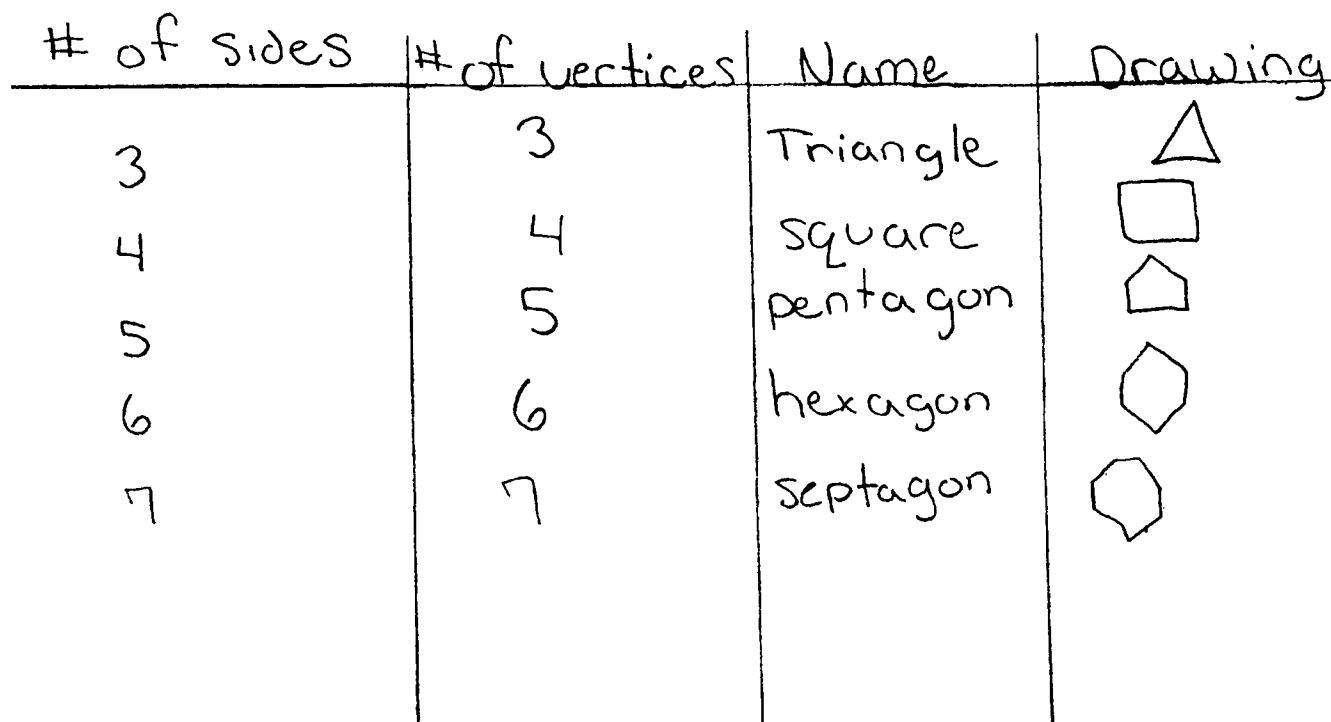 # of sides # of vertices Name Drawing
3 3 Triangle
4 4 square
5 5 pentagon
6 6 hexagon
7 7 septagon